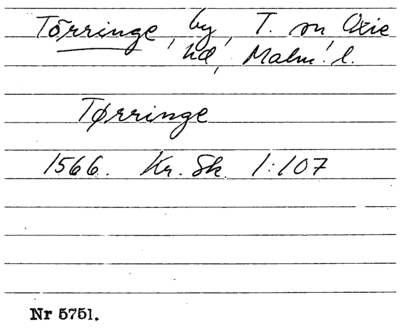 Törringe, by, T. sn, Oxie
hd, Malm. l.
Tørringe
1566. Kr. Sk. 1:107
Nr 5751.